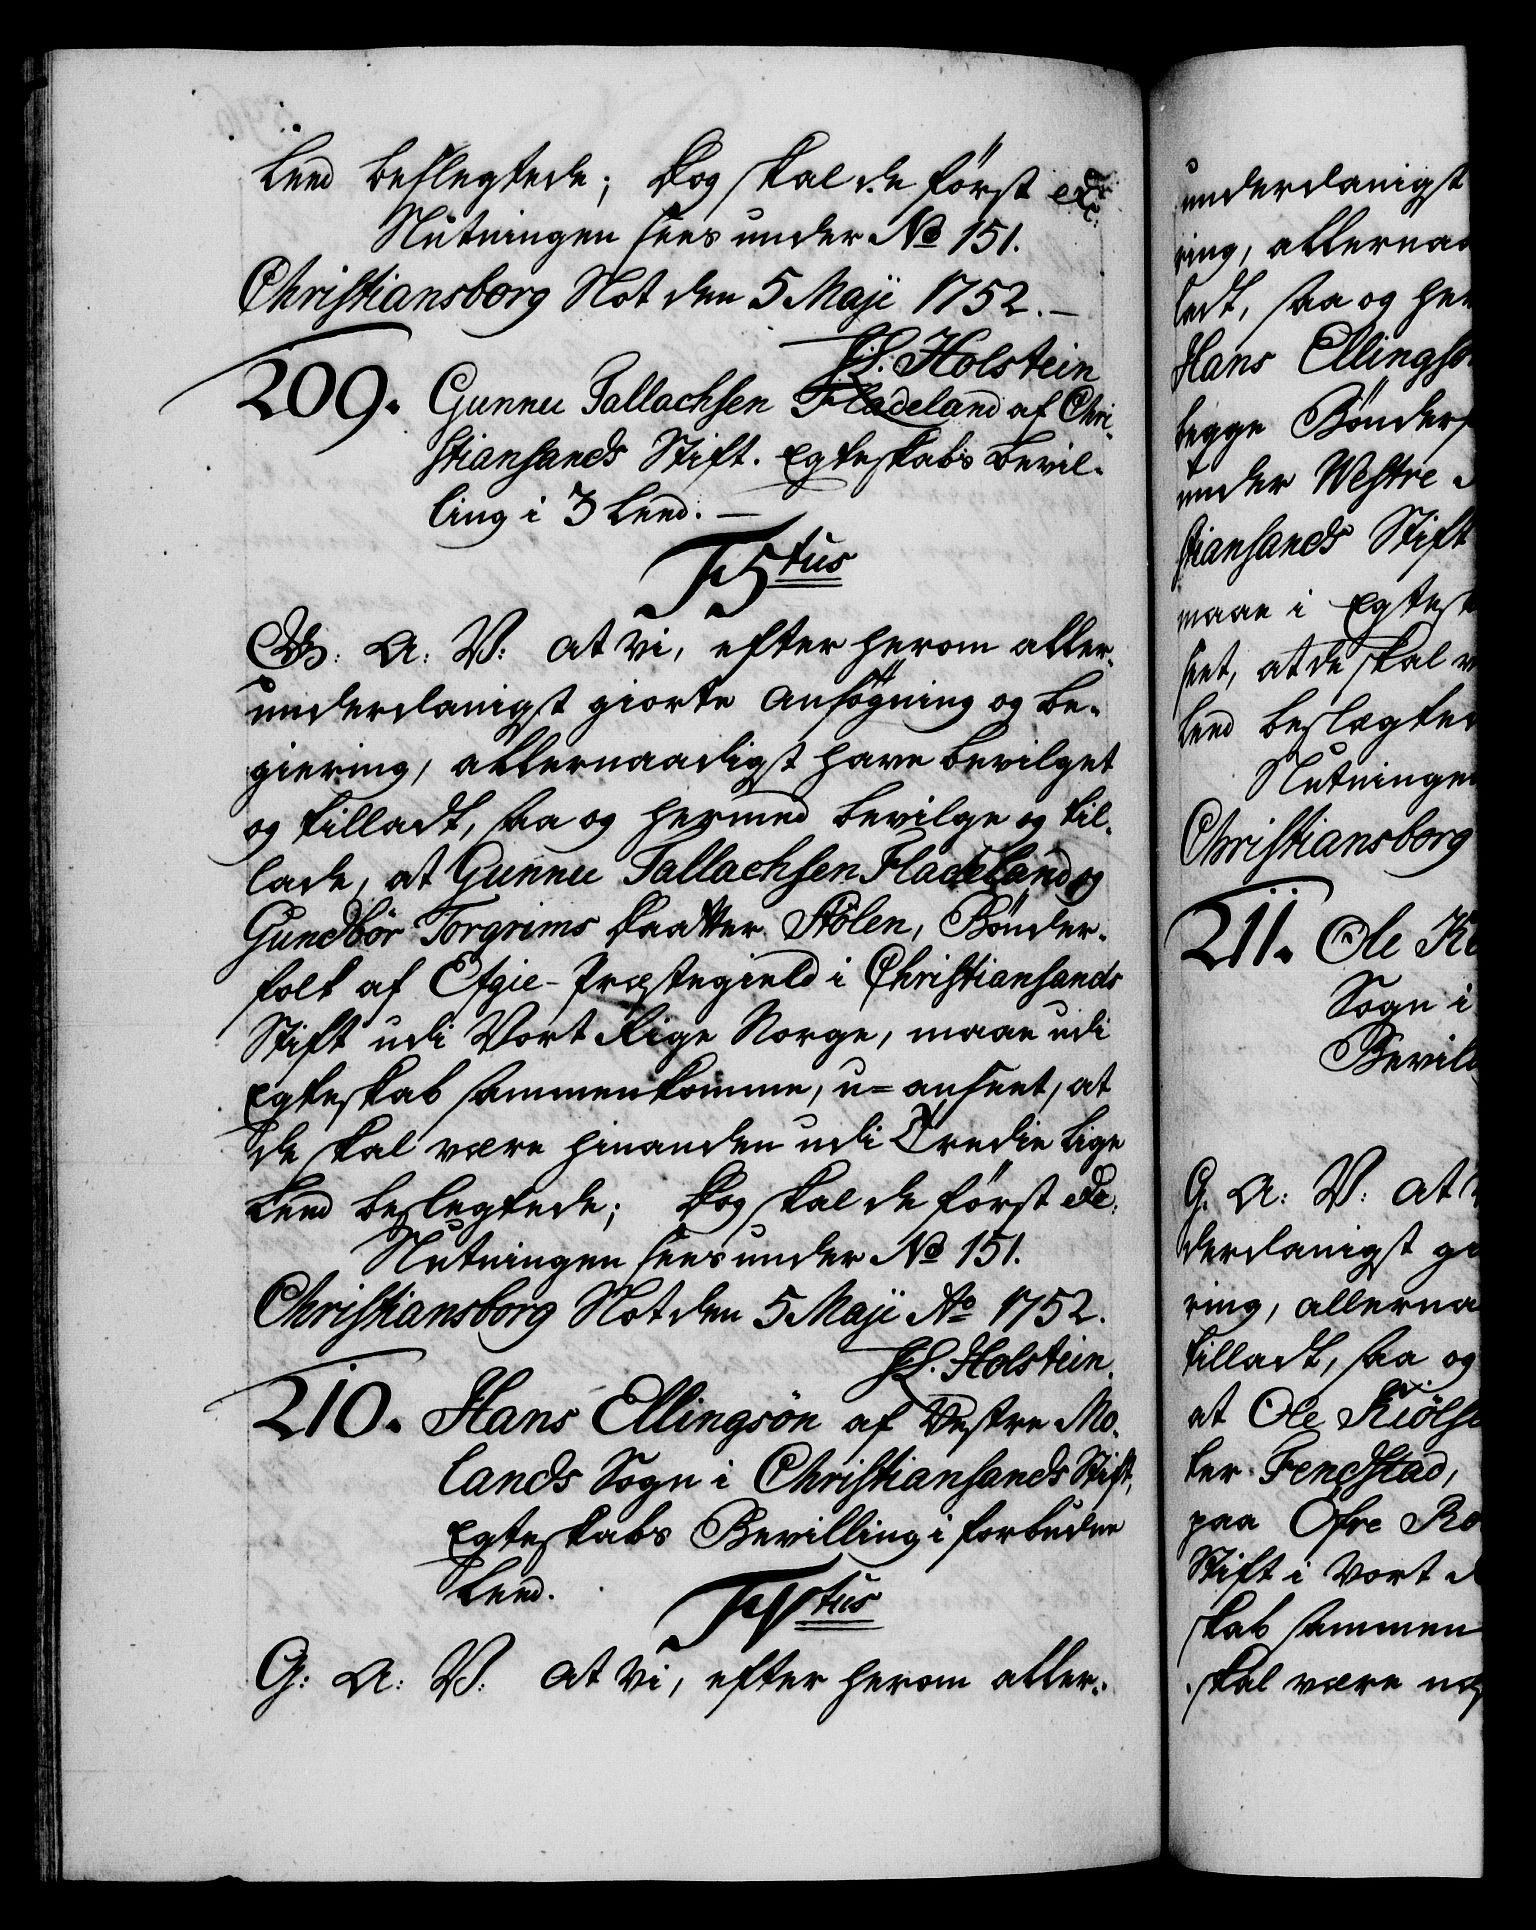 Leed beslegtede; Dog skal de først etc:
Slutningen sees under No 151.
Christiansborg Slot den 5 Maji 1752.
J. L. Holstein
209. Gunnu Tallachsen Fladeland af Chri-
stiansands Stift. Egteskabs Bevil-
ling i 3 Leed.
F5tus
G: A: V: at vi, efter herom aller-
underdanigst giorte Ansøgning og Be-
giering, allernaadigst have bevilget
og tilladt, saa og hermed bevilge og til-
lade, at Gunnu Tallachsen Fladeland og
Gundbør Torgrims Daatter Stølen, Bønder-
folk af Efgie-Præstegield i Christiansands
Stift udi Vort Rige Norge, maae udi
Egteskab sammenkomme, u-anseet, at
de skal være hinanden udi Tredie Lige
Leed beslegtede; Dog skal de først etc:
Slutningen sees under No 151.
Christiansborg Slot den 5 Maji Ao 1752.
J. L. Holstein.
210. Hans Ellingsøn af Vestre Mo-
lands Sogn i Christiansands Stift,
Egteskabs Bevilling i forbudne
Leed.
Ftus
G: A: V: at vi, efter herom aller-
underdanigst
ring, allernaa
ladt, saa og her
Hans Ellingsø
begge Bønderf
under Westre
stiansands Stift
maae i Egtesk
seet, at de skal v
Leed beslægted
Slutningen
Christiansborg
211. Ole Ki
Sogn i
Bevil
G. A: V: at
derdanigst gi
ring, allerna
tilladt, saa og
at Ole Kiølse
ter Fendstad,
paa Øfre Ro
Stift i Vort
skab sammen
skal være n